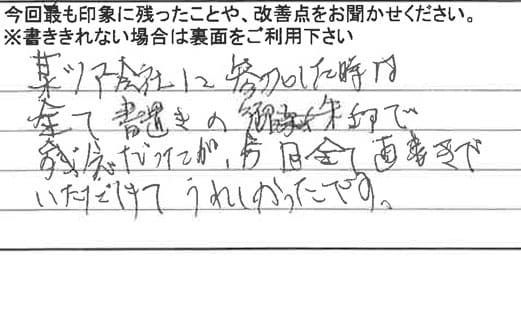 今回最も印象に残ったことや、改善点をお聞かせください。
※書ききれない場合は裏面をご利用下さい
某ツアー会社に参加した時は
全て書置きの御朱印で
残念だったが、今日全て直書きで
いただけてうれしかったです。